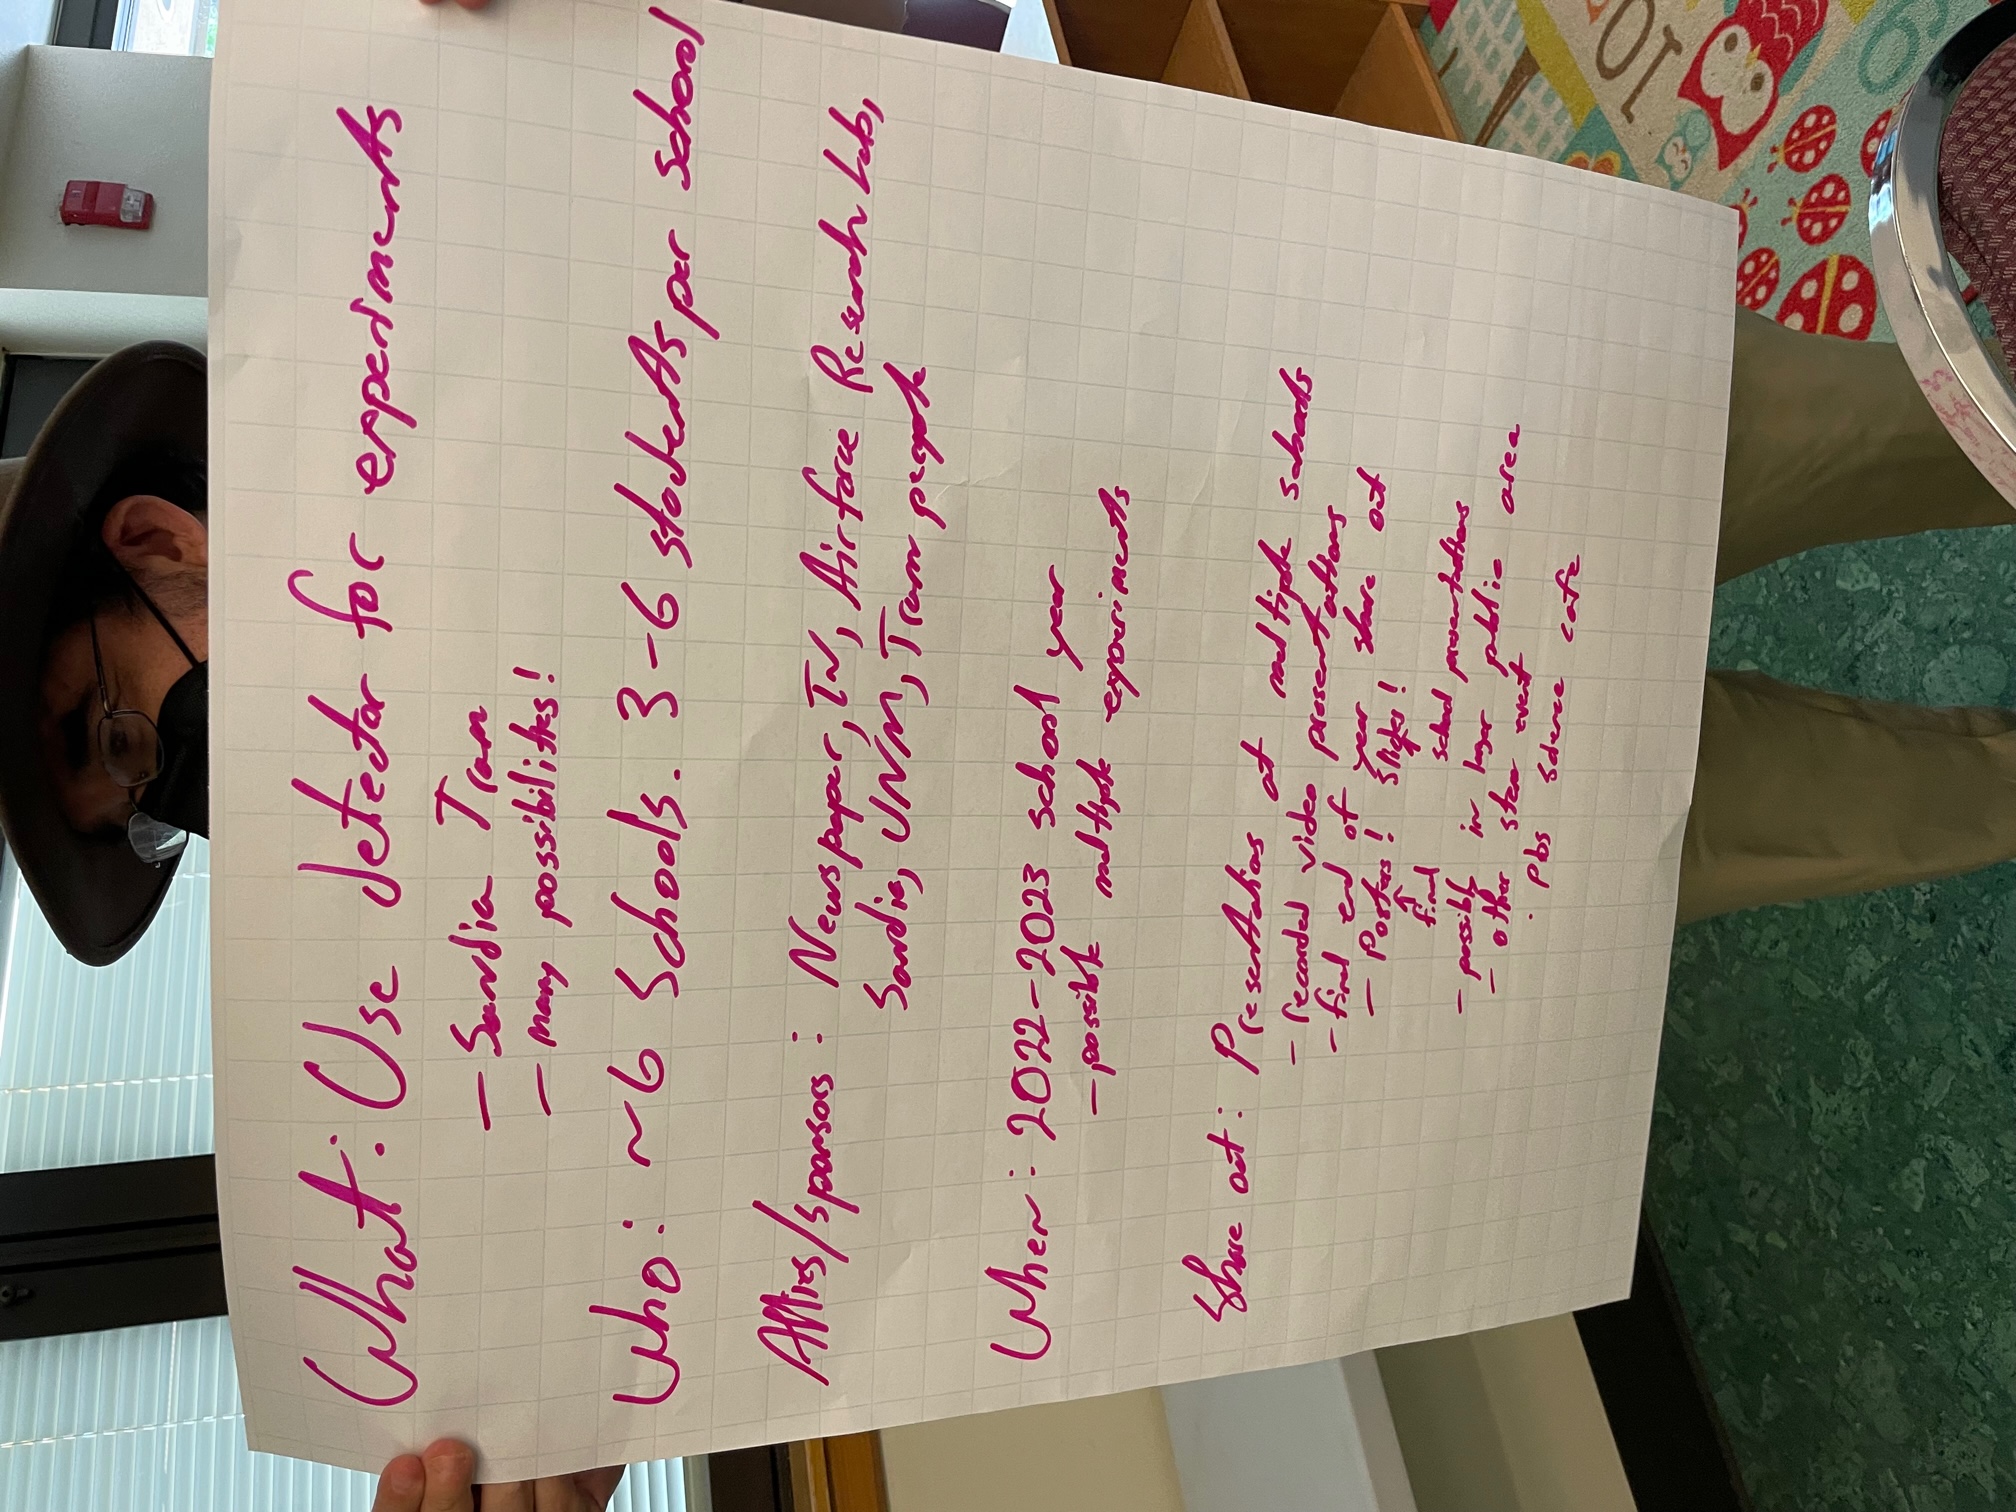 What: Use detector for experiments
- Sandia Tram
- many possibilities!
Who: ~6 Schools. 3-6 students per school
Allies/sponsors: Newspaper, TV, Airforce Research Lab,
Sandia, UNM, Tram people
When: 2022-2023 school year
- possible multiple experiments
Share out: Presentations at multiple schools
- recorded video presentations
- final end of year share out
- Posters! Slides!
↑
final school presentations
- possibly in larger public area
- other steam event
· Pbs Science cafe
10